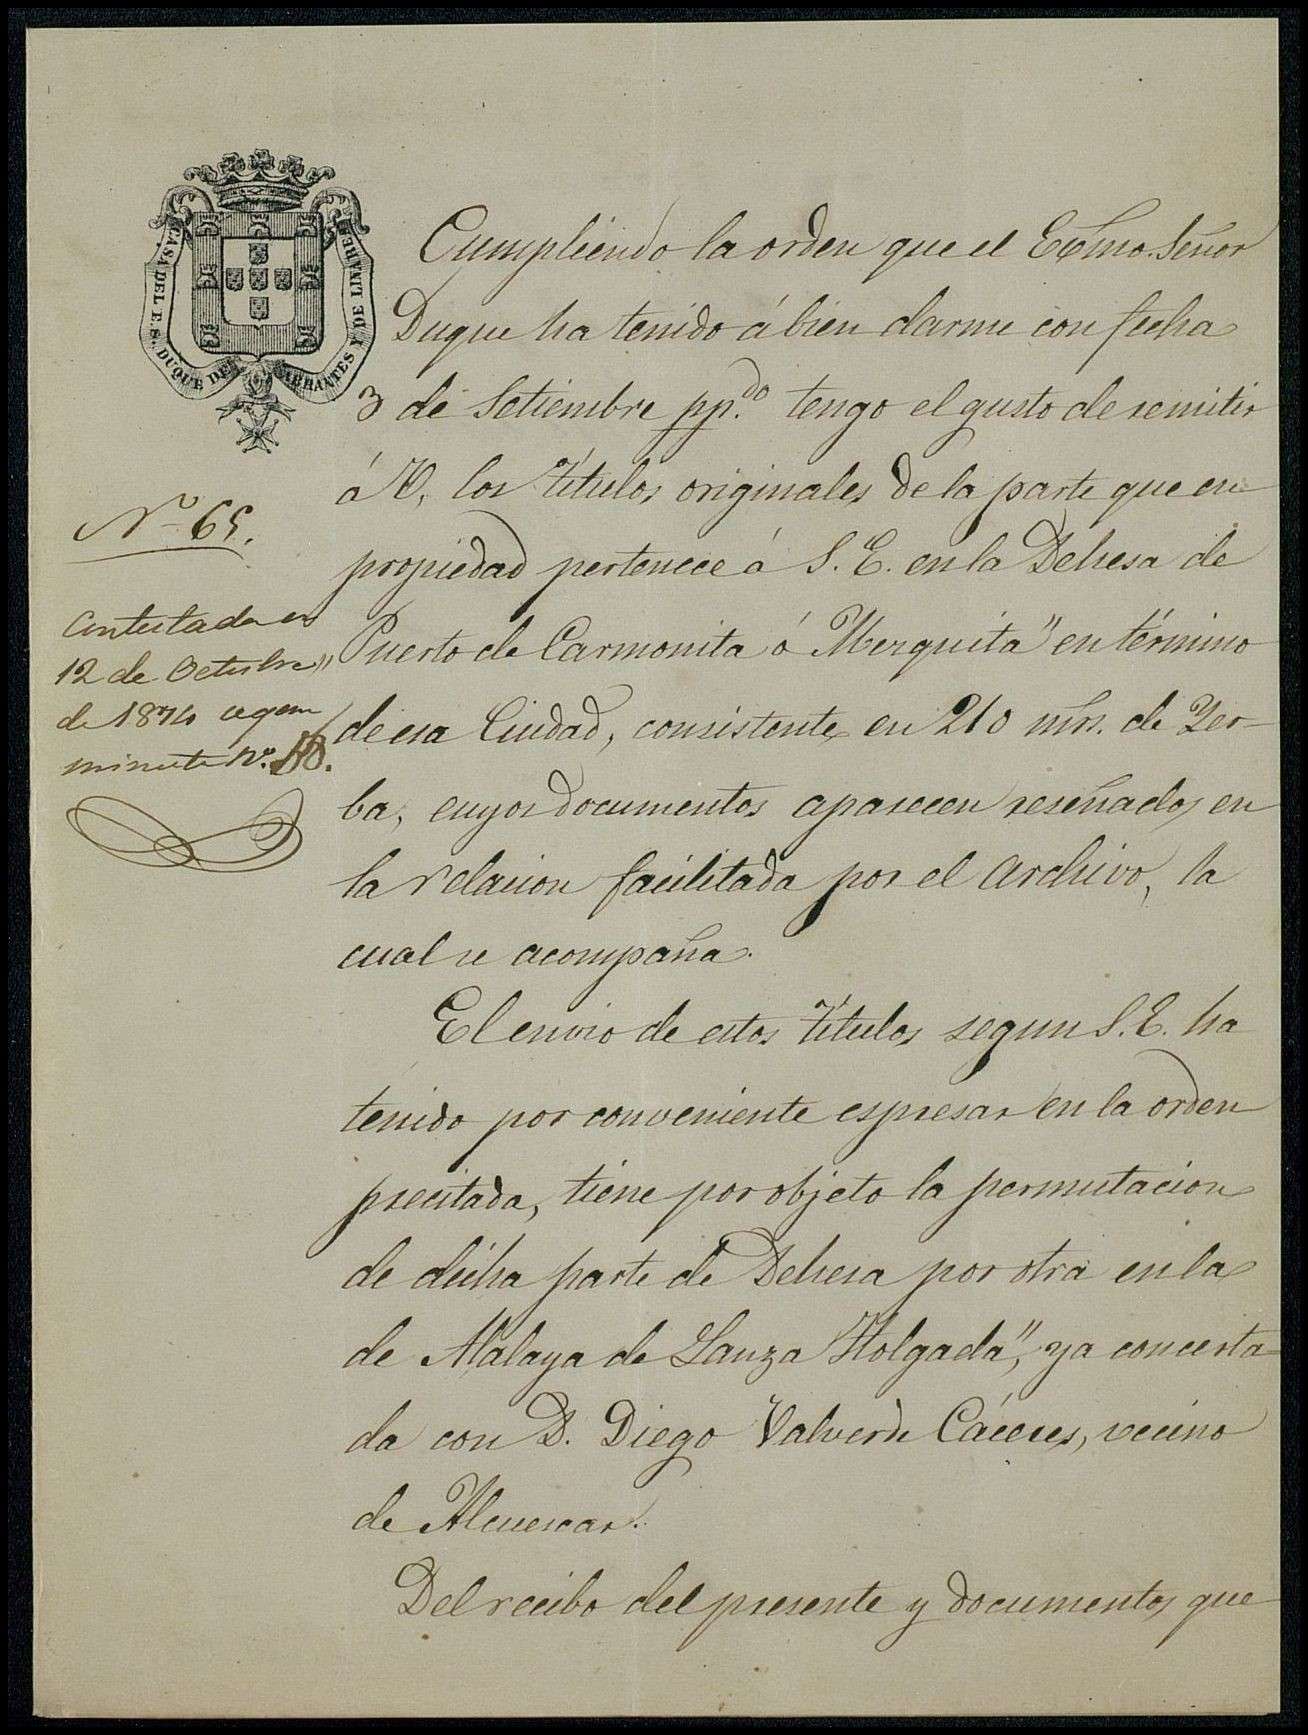 CASA DEL E. S. DUQUE DE ABRANTES Y DE LINARES
Cumpliendo la orden que el Exmo. Señor
Duque ha tenido á bien darme con fecha
3 de Setiembre pp.do tengo el gusto de remitir
á V, los títulos originales de la parte que en
propiedad pertenece á S. E. en la Dehesa de
Puerto de Carmonita ó Mezquita" en término
de esa Ciudad, consistente en 210 mrs. de Yer-
ba, cuyos documentos aparecen reseñados en
la relacion facilitada por el Archivo, la
cual se acompaña.
El envio de estos títulos segun S. E. ha
tenido por conveniente espresar en la orden
precitada, tiene por objeto la permutacion
de dicha parte de Dehesa por otra en la
de Malaya de Lanza Holgada", ya concerta-
da con D. Diego Valverde Cáceres, vecino
de Alcuescar.
Del recibo del presente y documentos que
Nº 65.
Contestada en
12 de Octubre
de 1874 segun
minuta nº.